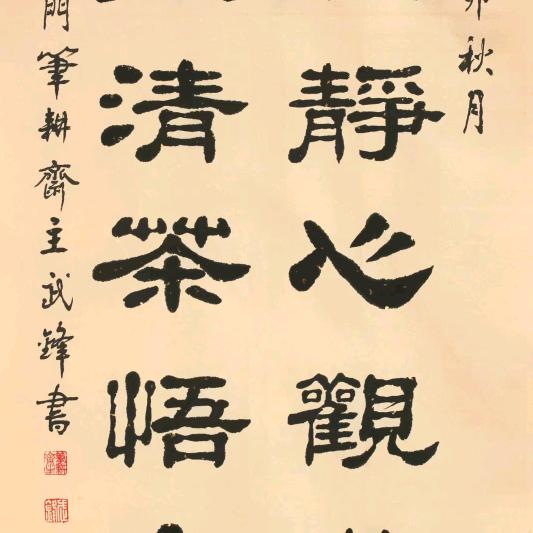 卯秋月
靜心觀
清茶悟
門筆耕齋主武鋒書